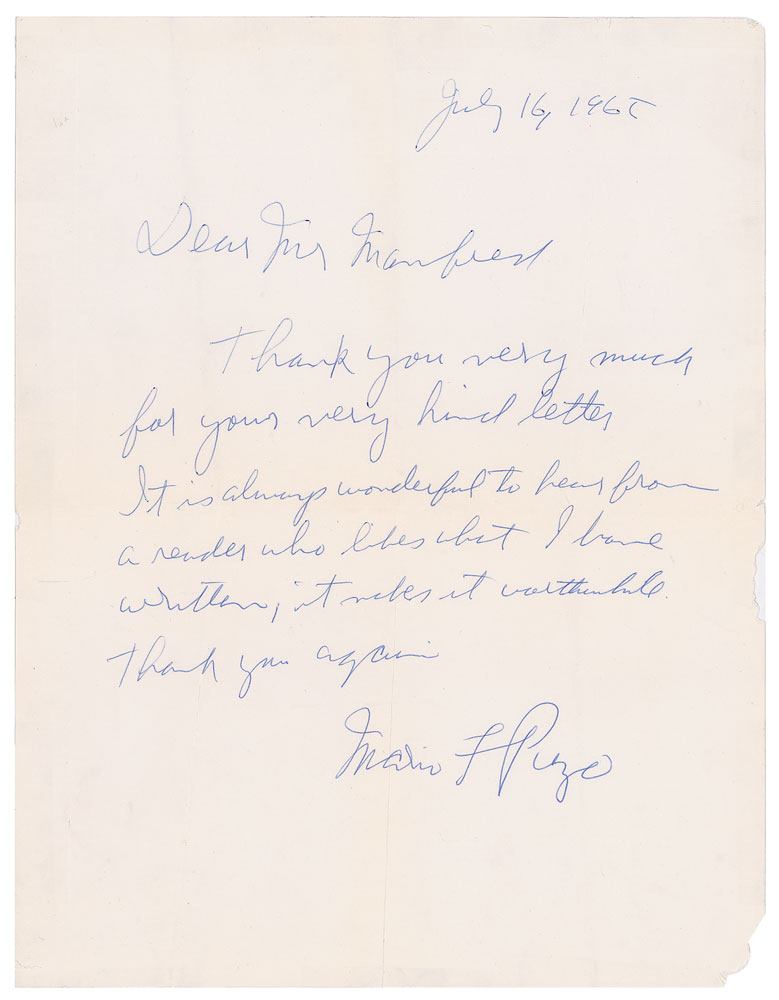 July 16, 1965
Dear Mr Manfred
Thank you very much
for your very kind letter
It is always wonderful to hear from
a reader who likes what I have
written, it makes it worthwhile.
Thank you again
Mario F Puzo